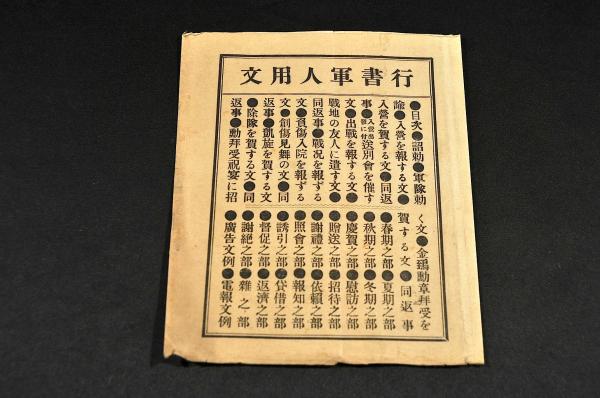 行書軍人用文
●目次●詔勅●軍隊勅
諭●入營を報ずる文●
入營を賀する文●同返
事●入營出發に付送別會を催す
文●出戰を報する文●
戰地の友人に遣す文●
同返事●戰况を報ずる
文●負傷入院を報ずる
文●創傷見舞の文●同
返事●凱旋を賀する文
●除隊を賀する文●同
返事●勳拜受祝宴に招
く文●金鵄勳章拜受を
賀する文●同返事
●春期之部●夏期之部
●秋期之部●冬期之部
●慶賀之部●慰訪之部
●贈送之部●招待之部
●謝禮之部●依賴之部
●照會之部●報知之部
●誘引之部●貸借之部
●督促之部●返濟之部
●謝絕之部●雜之部
●廣告文例●電報文例